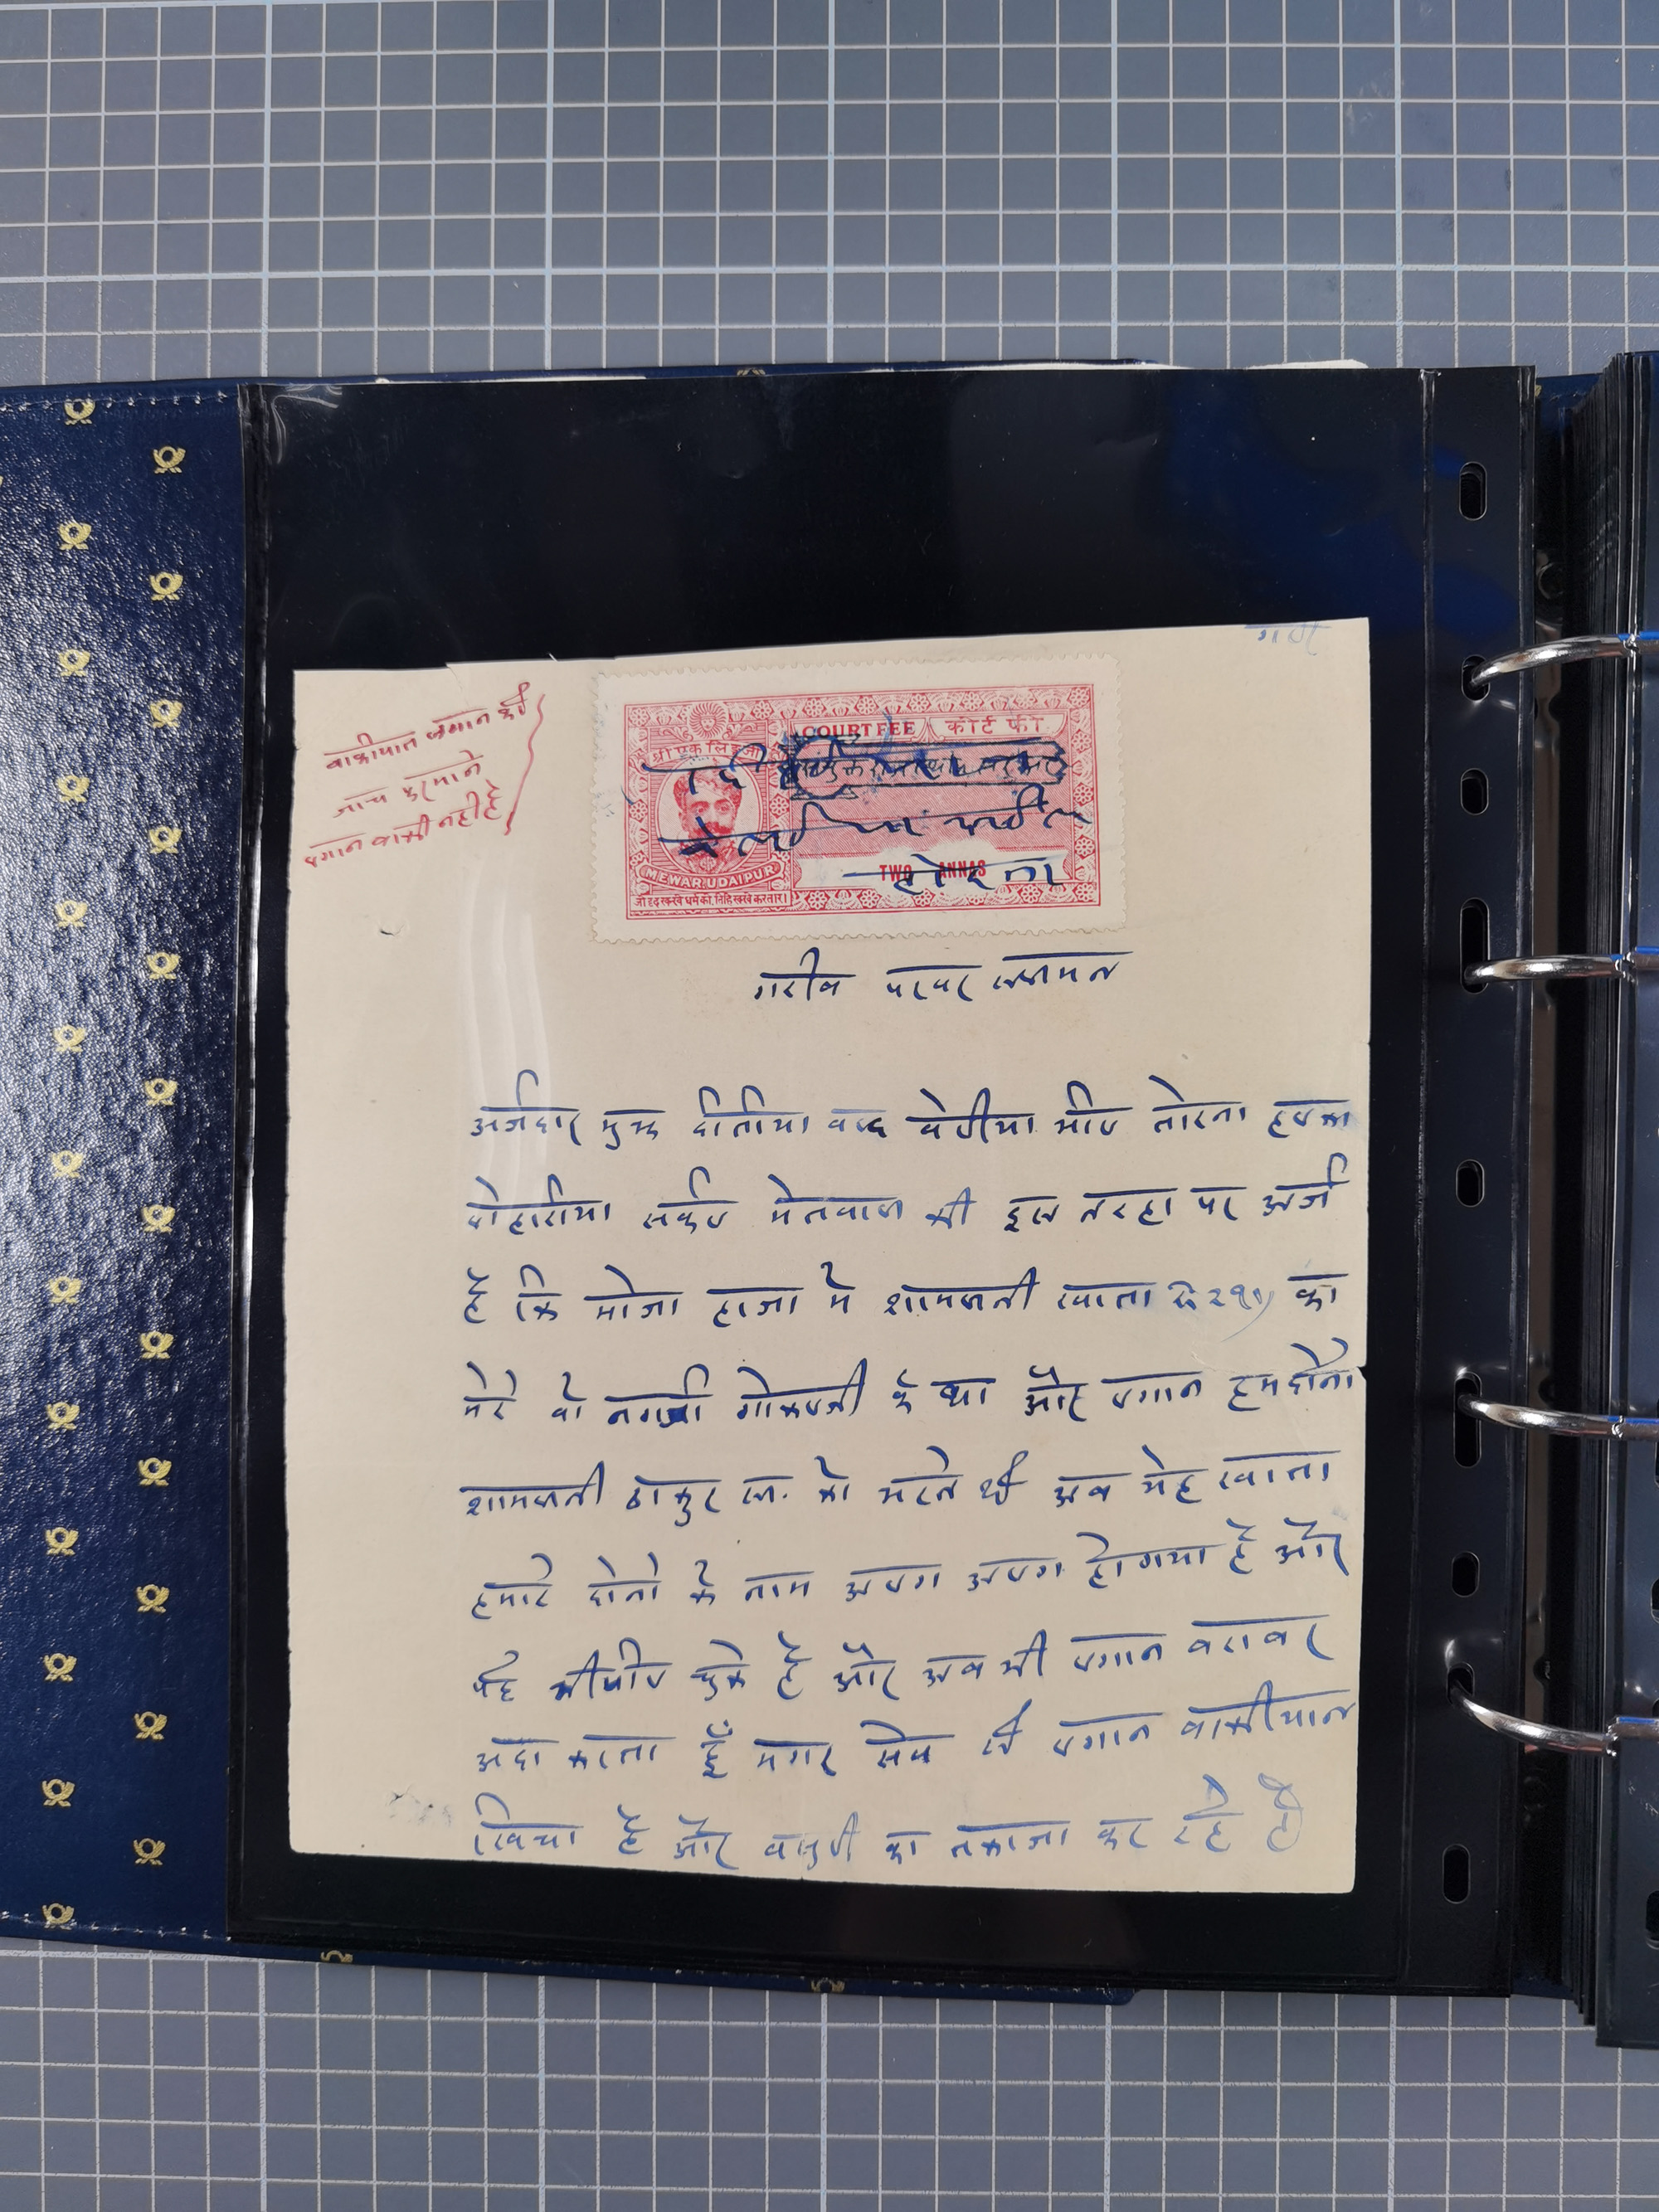 वाकीयात लगान की
जाच फरमाने
लगान वाकी नही है
श्री एकलिङ्गजी
COURT FEE कोर्ट फी
TWO ANNAS
MEWAR.UDAIPUR
जो दृढ रक्खे धर्म को, तिहि रक्खे करतार।
गरीब परवर सलामत
अर्जदार मुझ दीतीया वल्द वेलीया भील तोरना हलका
सर्कल की इस तरहा पर अर्ज
है कि मोजा हाजा मे शामलाती खाता का
मेरे वो के था और लगान हम दोनो
शामलाती ठाकुर सा. को भरते थे अब येह खाता
हमारे दोनो के नाम अलग अलग होगया है और
चुके है और अब भी लगान बराबर
अदा करता हूँ मगर लगान वाकीयात
खिचा है और वसुली का तकाजा कर रहे है